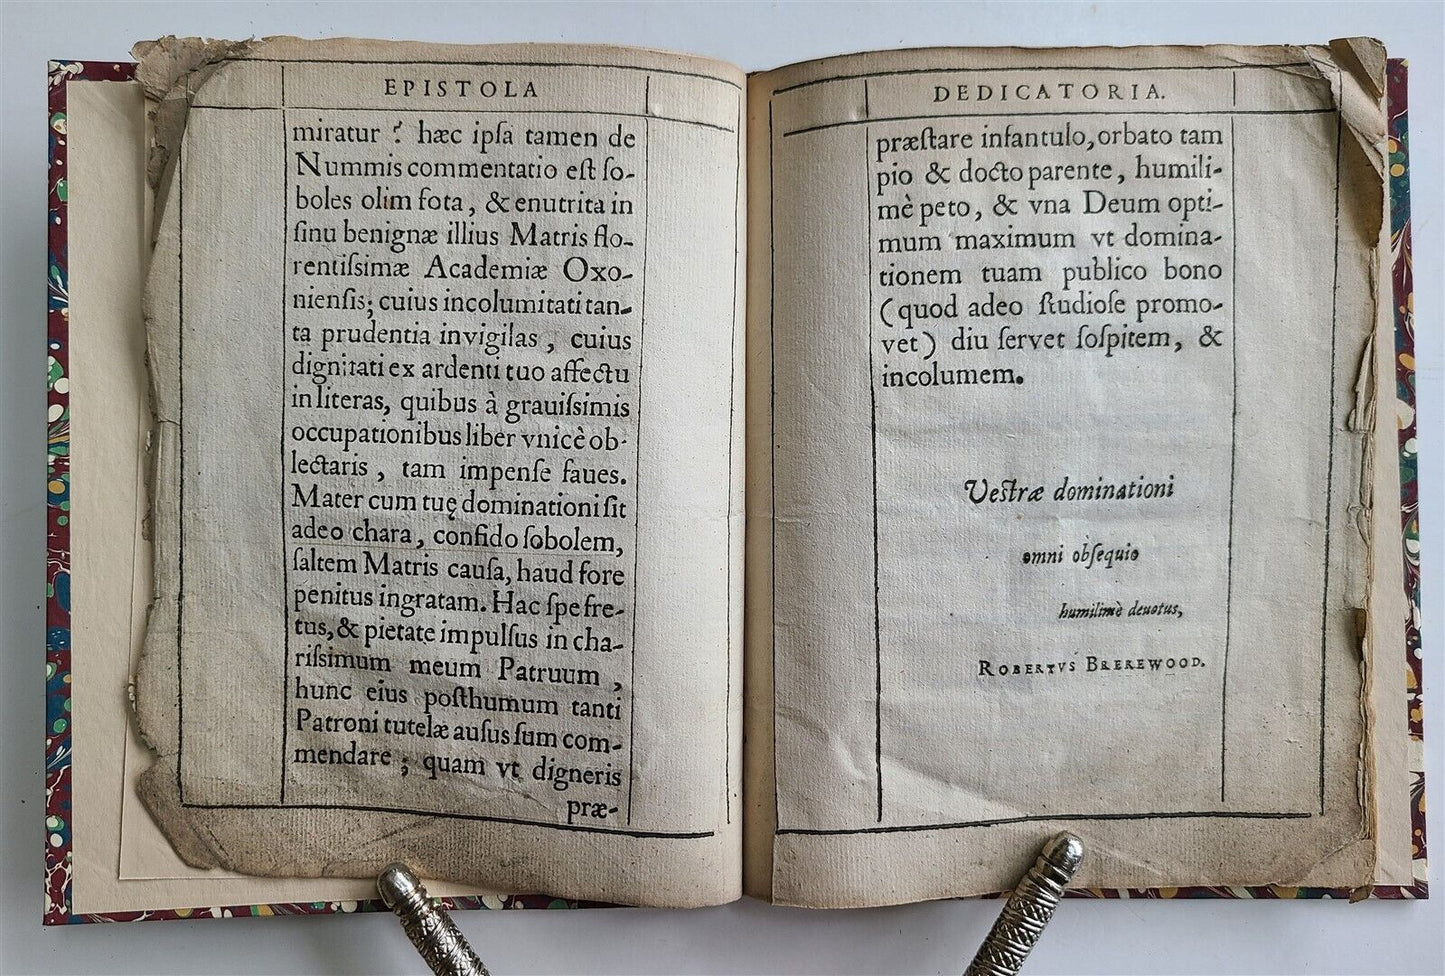 EPISTOLA
miratur? hæc ipſa tamen de
Nummis commentatio eſt ſo-
boles olim fota, & enutrita in
ſinu benignæ illius Matris flo-
rentiſſimæ Academiæ Oxo-
nienſis; cuius incolumitati tan-
ta prudentia invigilas, cuius
dignitati ex ardenti tuo affectu
in literas, quibus à grauiſsimis
occupationibus liber vnicè ob-
lectaris, tam impenſe faues.
Mater cum tuę dominationi ſit
adeo chara, confido ſobolem,
ſaltem Matris cauſa, haud fore
penitus ingratam. Hac ſpe fre-
tus, & pietate impulſus in cha-
riſsimum meum Patruum,
hunc eius poſthumum tanti
Patroni tutelæ auſus ſum com-
mendare; quam vt digneris
præ-
DEDICATORIA.
præſtare infantulo, orbato tam
pio & docto parente, humili-
mè peto, & vna Deum opti-
mum maximum vt domina-
tionem tuam publico bono
(quod adeo ſtudioſe promo-
vet) diu ſervet ſoſpitem, &
incolumem.
Veſtræ dominationi
omni obſequio
humilimè deuotus,
ROBERTVS BREREWOOD.